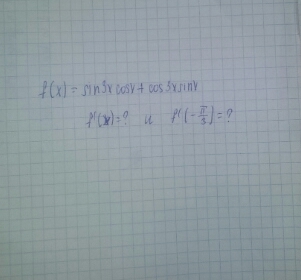 f(x) = sin3x cosx + cos3x sinx
f'(x)=? и f'(-π/3)=?